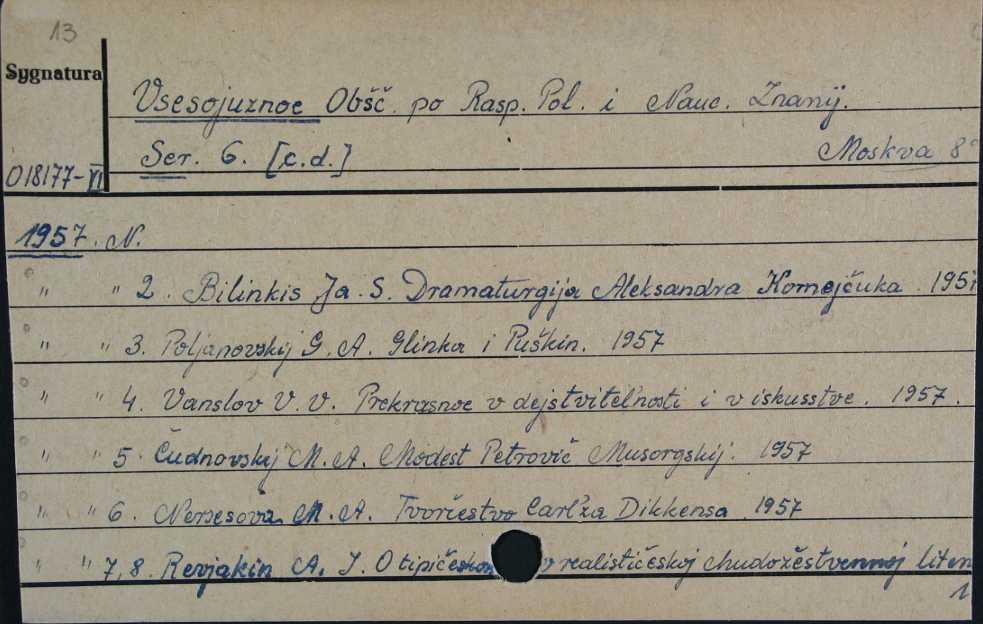 13
Sygnatura
Vsesojuznoe Obšč. po Rasp. Pol. i Nauč. Znanij.
Ser. 6. [c.d.] Moskva 8°
018177-VI
1957. N.
" " 2. Bilinkis Ja. S. Dramaturgija Aleksandra Kornejčuka. 1957
" " 3. Poljanovskij G. A. Glinka i Puškin. 1957
" " 4. Vanslov V. V. Prekrasnoe v dejstvitel'nosti i v iskusstve. 1957.
" " 5. Čudnovskij M. A. Modest Petrovič Musorgskij. 1957
" " 6. Nersesova M. A. Tvorčestvo Čarl'za Dikkensa 1957
" " 7, 8. Revjakin A. I. O tipičeskom v realističeskoj chudožestvennoj liter
1